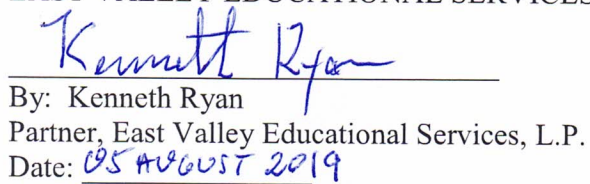 EAST VALLEY EDUCATIONAL SERVICES
Kenneth Ryan
By: Kenneth Ryan
Partner, East Valley Educational Services, L.P.
Date: 05 AUGUST 2019